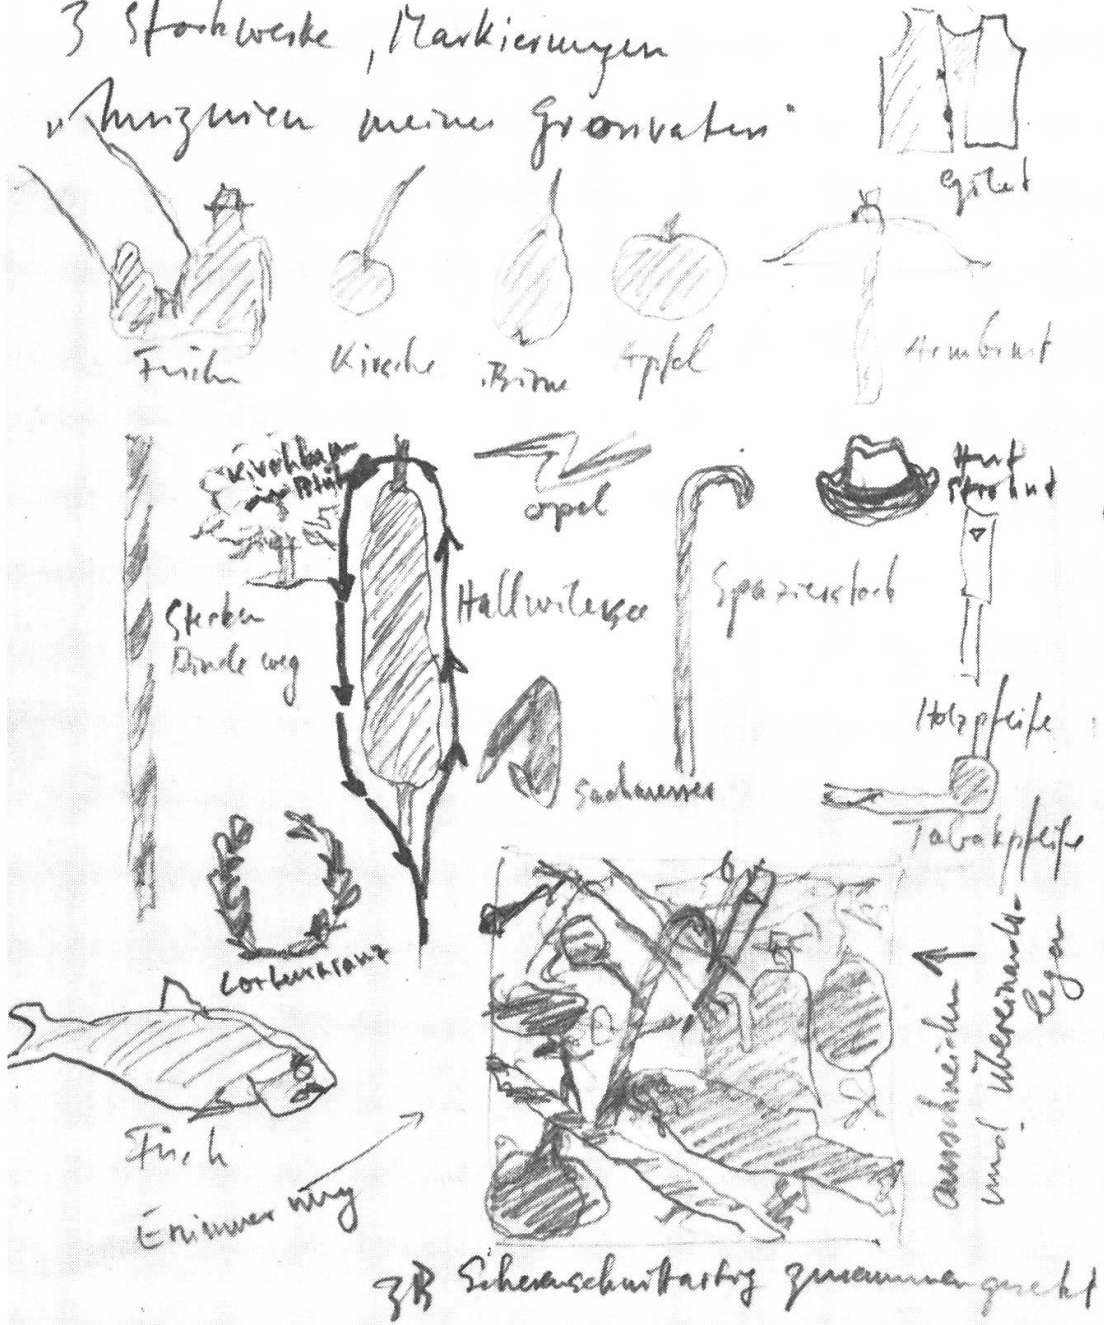 3 Stockwerke, Markierungen
"Insignien meines Grossvaters"
Gilet
Fischer
Kirsche
Birne
Apfel
Armbrust
Kirschbaum
in Blüte
opel
Hut
Stecken
Bindeweg
Hallwilersee
Spazierstock
Holzpfeife
Sackmesser
Tabakpfeife
Lorbeerkranz
Fisch
Erinnerung
ausschneiden
und übereinander-
legen
zB Scherenschnittartig zusammengesetzt